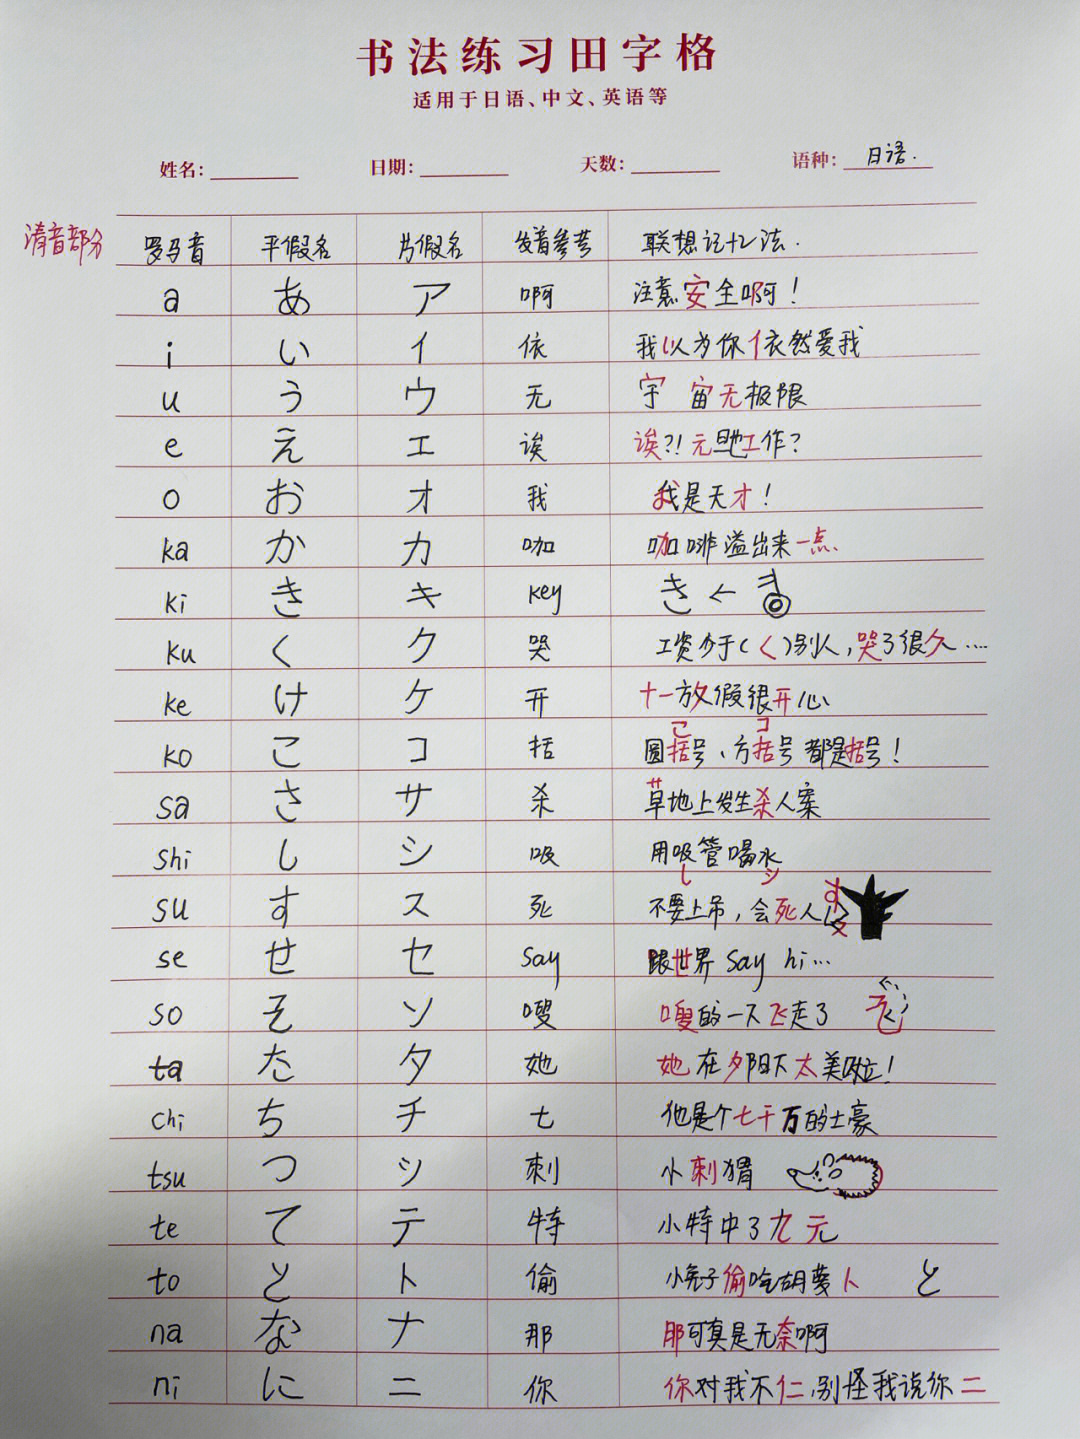 书法练习田字格
适用于日语、中文、英语等
姓名: 日期: 天数: 语种: 日语.
清音部分
罗马音 平假名 片假名 发音参考 联想记忆法.
a あ ア 啊 注意安全啊!
i い イ 依 我以为你依然爱我
u う ウ 无 宇宙无极限
e え エ 诶 诶?! 元旦工作?
o お オ 我 我是天才!
ka か カ 咖 咖啡溢出来一点
ki き キ key き ←
ku く ク 哭 工资少于(く)别人,哭了很久....
ke け ケ 开 十一放假很开心
こ コ
ko こ コ 括 圆括号、方括号都是括号!
サ
sa さ サ 杀 草地上发生杀人案
shi し シ 吸 用吸管喝水
し シ
su す ス 死 不要上吊,会死人! す ス
se せ セ say 跟世界 say hi...
so そ ソ 嗖 嗖的一下飞走了 そ
ta た タ 她 她在夕阳下太美啦!
chi ち チ 七 他是个七千万的土豪
tsu つ ツ 刺 小刺猬
te て テ 特 小特中了九元
to と ト 偷 小兔子偷吃胡萝卜 と
na な ナ 那 那可真是无奈啊
ni に ニ 你 你对我不仁,别怪我说你二